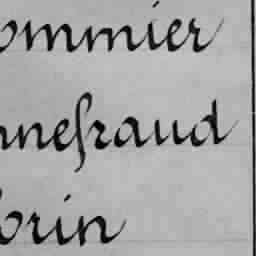 ommier
nnefraud
orin